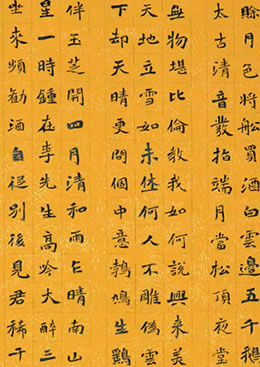 賒月色將船買酒白雲邊五千鵝
太古清音發指端月當松頂夜堂
無物堪比倫教我如何說興來美
天地立雪如未休何人不雕後雲
下却天晴更問個中意鵓鳩生鷄
伴玉芝開四月清和雨乍晴南山
星一時鍾在李先生高吟大醉三
坐來頻勸酒自從別後見君稀千